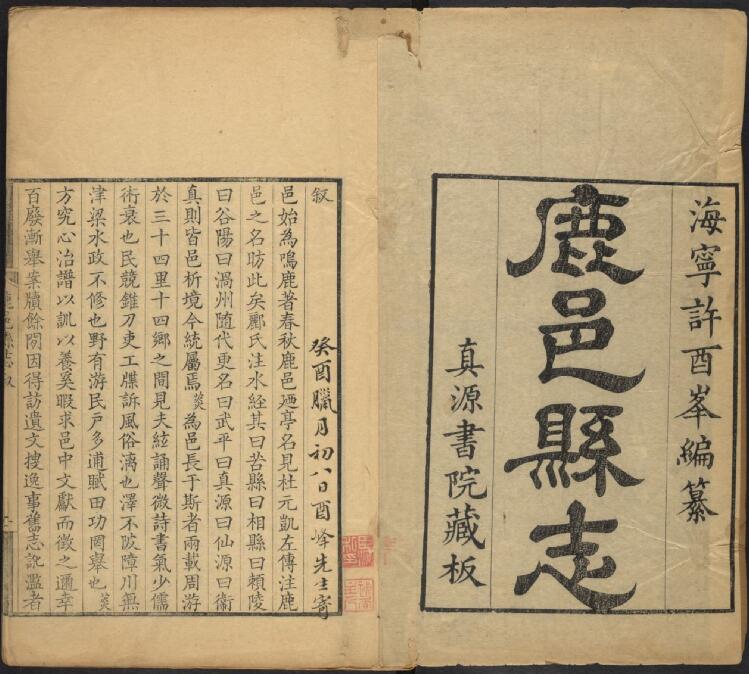 海寧許酉峯編纂
鹿邑縣志
真源書院藏板
叙
癸酉臘月初八日酉峰先生寄
邑始為鳴鹿著春秋鹿邑廼亭名見杜元凱左傳注鹿
邑之名昉此矣酈氏注水經其曰苦縣曰相縣曰賴陵
曰谷陽曰渦州隨代更名曰武平曰真源曰仙源曰衛
真則皆邑析境今統屬焉菼為邑長于斯者兩載周游
於三十四里十四鄉之間見夫絃誦聲微詩書氣少儒
術衰也民競錐刀吏工牒訴風俗漓也澤不陂障川無
津梁水政不修也野有游民戶多逋賦田功罔舉也菼
方究心治譜以訓以養奚暇求邑中文獻而徵之邇幸
百廢漸舉案牘餘閒因得訪遺文搜逸事舊志訛濫者
鹿邑縣志 叙